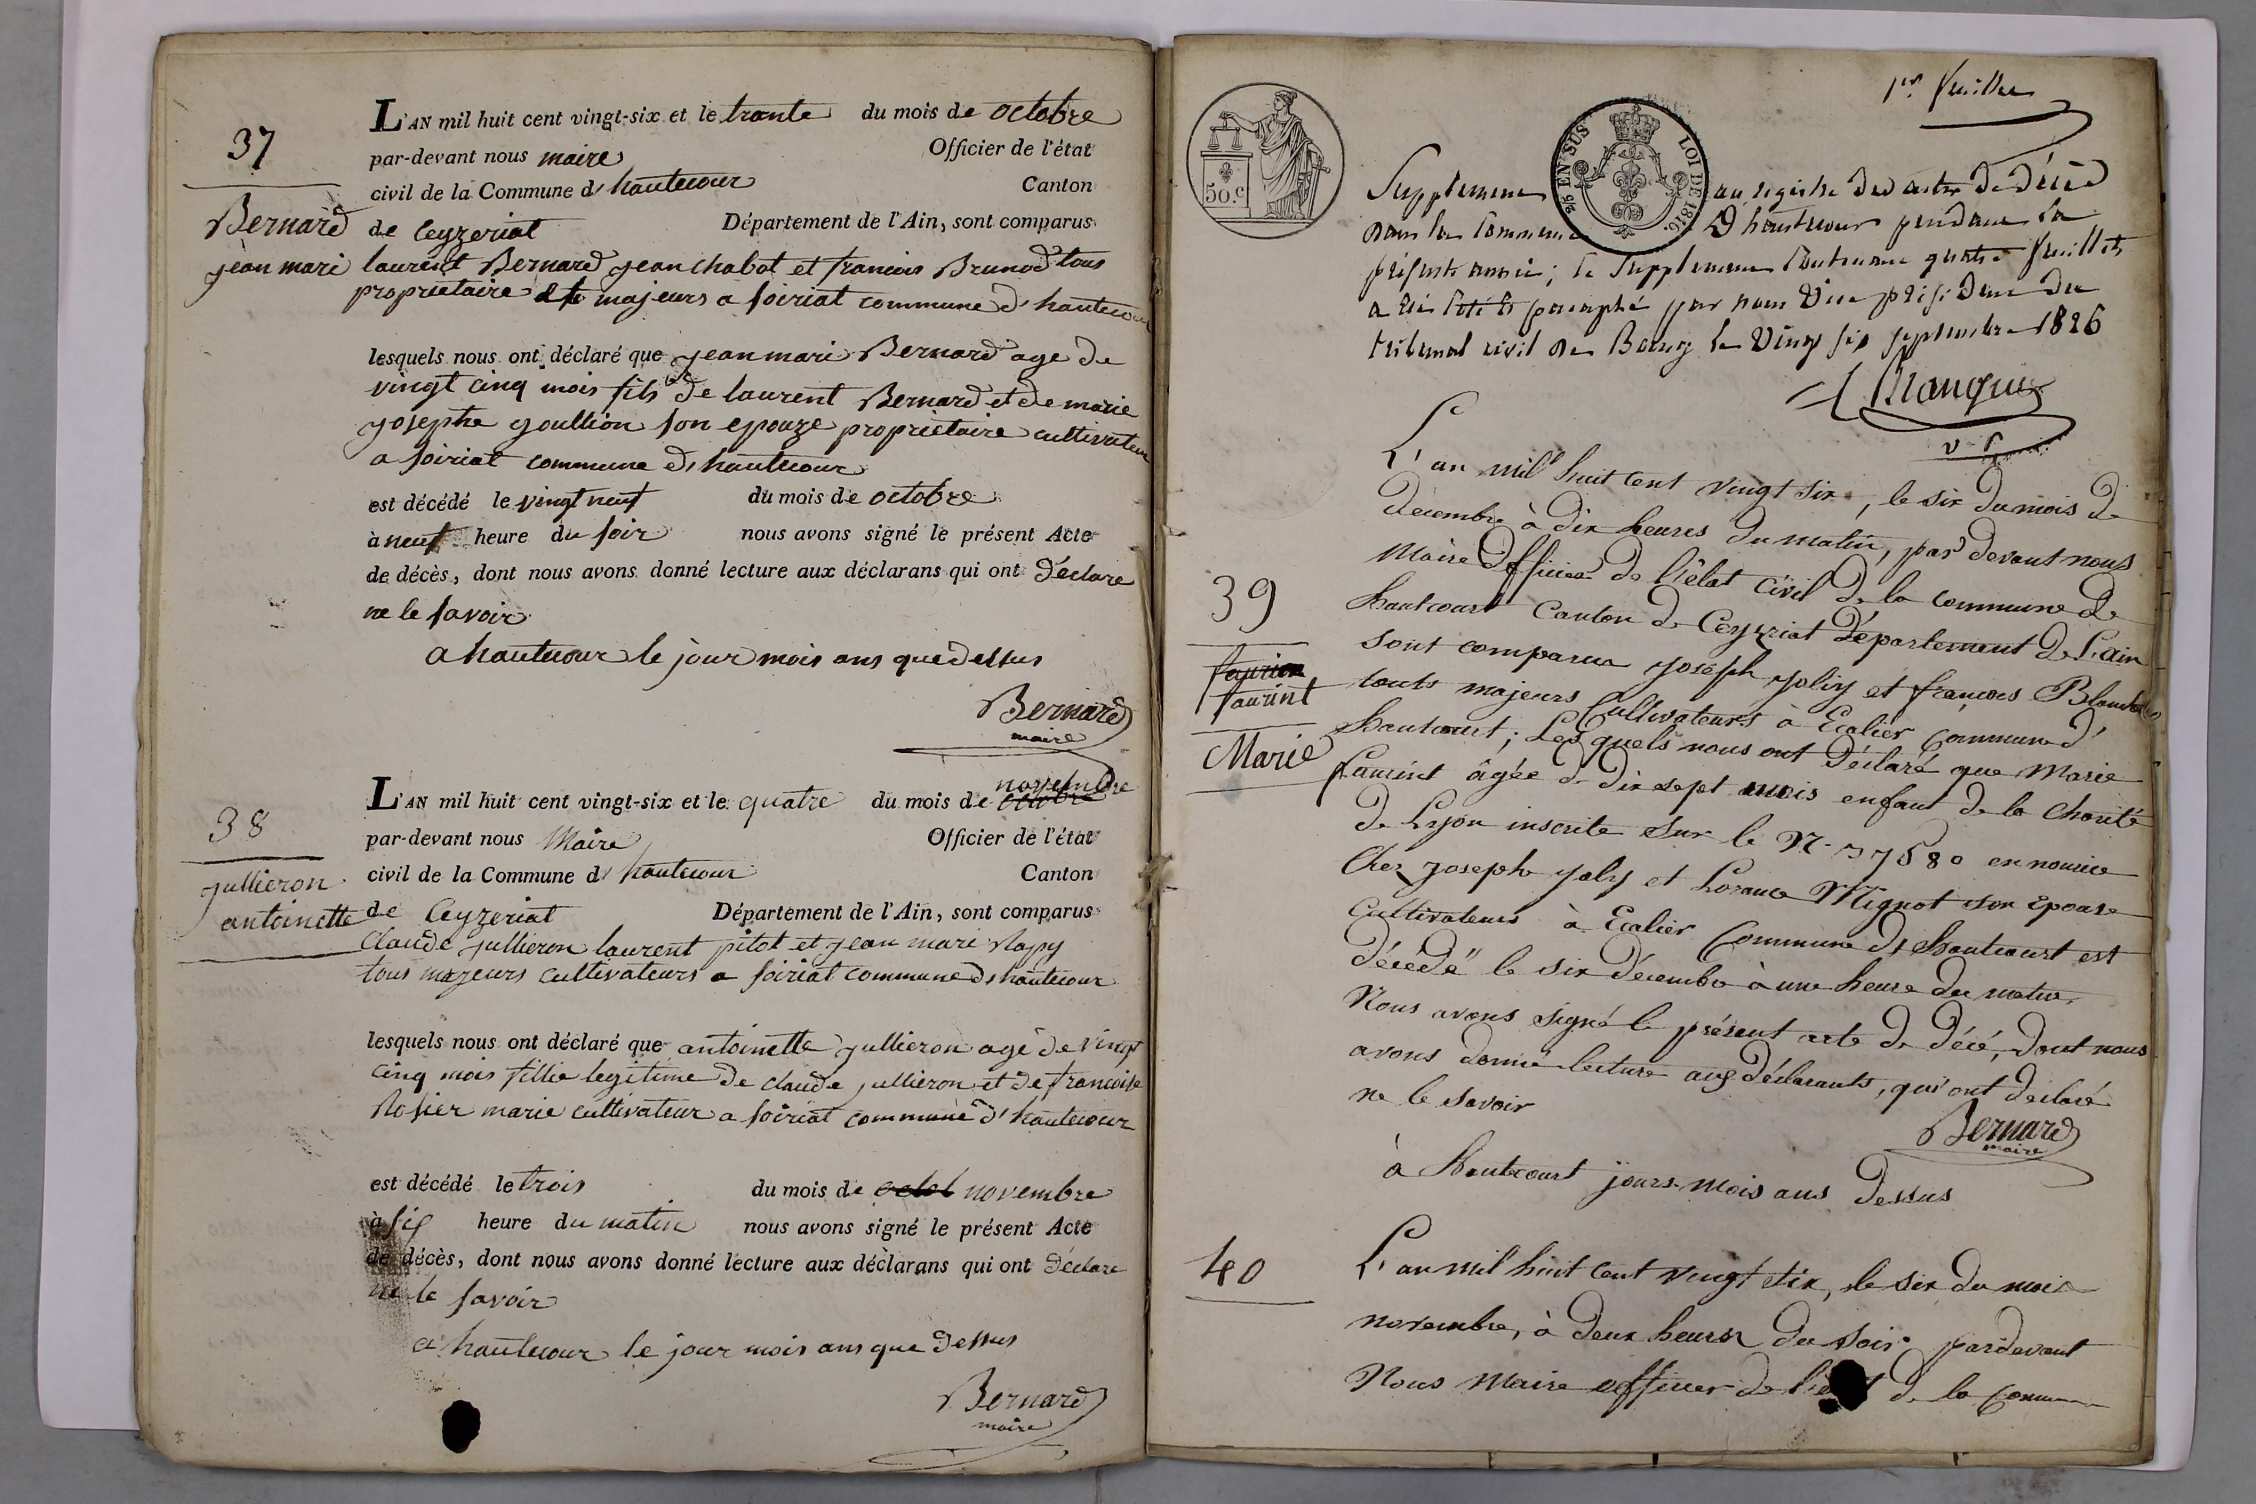 37
Bernard
jean mari
L'AN mil huit cent vingt-six et le trante du mois de octobre
par-devant nous maire Officier de l'état
civil de la Commune d'hautecour Canton
de Ceyzeriat Département de l'Ain, sont comparus
laurent Bernard jean chabot et francois Brunod tous
proprietaire majeurs a soiriat commune d'hautecour
lesquels nous ont déclaré que jean mari Bernard age de
vingt cinq mois fils de laurent Bernard et de marie
josephe goullion son epouze proprietaire cultivateur
a soiriat commune d'hautecour
est décédé le vingt neuf du mois de octobre
à neuf heure du soir nous avons signé le présent Acte
de décès, dont nous avons donné lecture aux déclarans qui ont déclare
ne le savoir
a hautecour le jour mois ans que dessus
Bernard
maire
38
jullieron
antoinette
novembre
L'AN mil huit cent vingt-six et le quatre du mois de octobre
par-devant nous Maire Officier de l'état
civil de la Commune d'hautecour Canton
de Ceyzeriat Département de l'Ain, sont comparus
Claude jullieron laurent pitot et jean mari
tous majeurs cultivateurs a soiriat commune d'hautecour
lesquels nous ont déclaré que antoinette jullieron agé de vingt
cinq mois fillie legitime de claude jullieron et de francoise
Rosier marie cultivateur a soiriat commune d'hautecour
est décédé le trois du mois de octob novembre
à six heure du matin nous avons signé le présent Acte
de décès, dont nous avons donné lecture aux déclarans qui ont déclare
ne le savoir
a hautecour le jour mois ans que dessus
Bernard
maire
1er feuillet
50.c
2/5 EN SUS LOI DE 1816.
Supplement au registre des actes de décès
dans la commune d'hautecour pendant la
présente année; le supplement contenant quatre feuillets
a été coté et paraphé par nous Vice président du
tribunal civil de Bourg le vingt six septembre 1826
v. p.
39
faurint
Marie
L'an mil huit cent vingt six, le six du mois de
decembre à dix heures du matin, par devant nous
Maire Officier de l'état civil de la commune de
hautcourt Canton de Ceyzriat Département de l'ain
sont comparus joseph joliy et françois Blanchet
touts majeurs Cultivateurs à Ecalier Commune d'
hautcourt; Les quels nous ont déclaré que Marie
faurint âgée de dix sept mois enfant de la charité
de Lyon inscrite sur le N. 37680 en nourice
chez joseph joly et Lorance Mignot son epouse
Cultivateurs à Ecalier Commune d'hautcourt est
décédé le six décembre à une heure du matin.
Nous avons signé le présent acte de décé, dont nous
avons donné lecture aux déclarants, qui ont déclaré
ne le savoir
Bernard
maire
à hautcourt jours mois ans dessus
40
L'an mil huit cent vingt six, le six du mois
novembre, à deux heures du soir pardevant
Nous Maire officier de l'état de la Commune